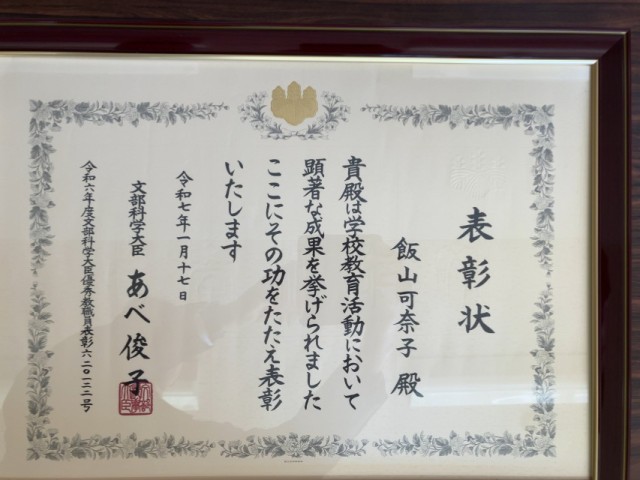 表彰状
飯山可奈子 殿
貴殿は学校教育活動において
顕著な成果を挙げられました
ここにその功をたたえ表彰
いたします
令和七年一月十七日
文部科学大臣 あべ俊子
令和六年度文部科学大臣優秀教職員表彰六二〇一三二号